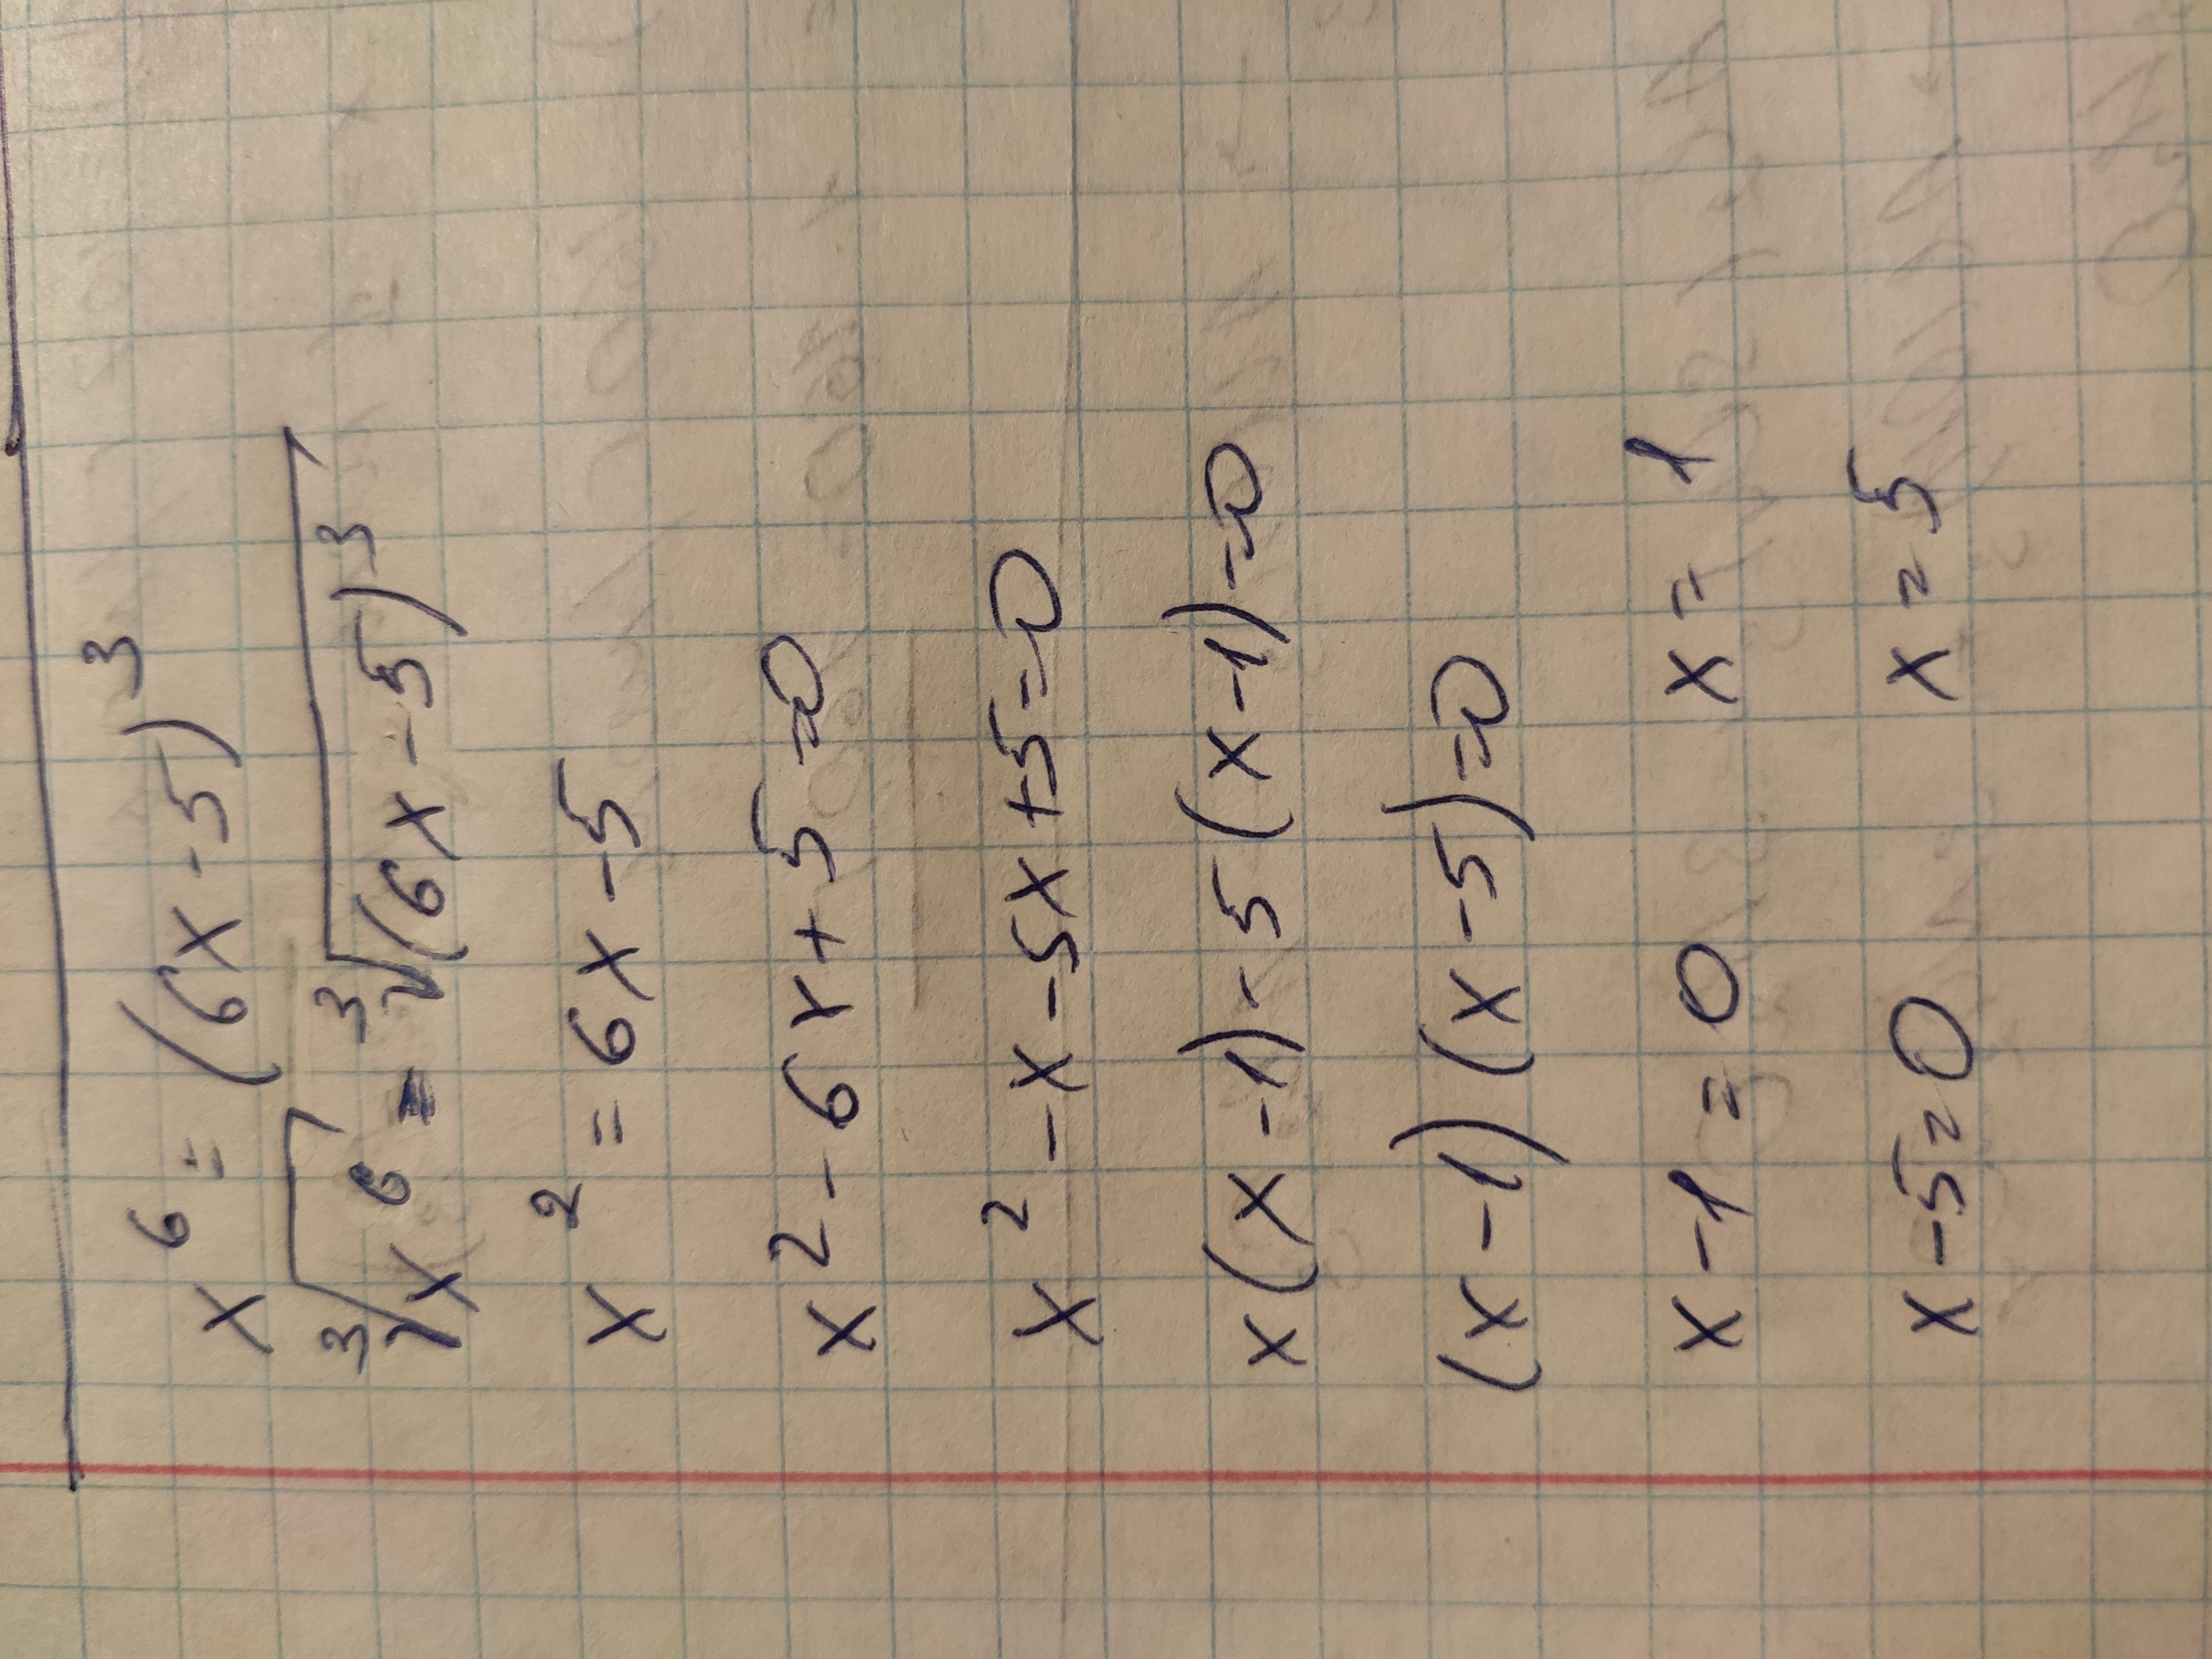 x⁶ = (6x - 5)³
∛x⁶ = ∛(6x - 5)³
x² = 6x - 5
x² - 6x + 5 = 0
x² - x - 5x + 5 = 0
x(x - 1) - 5(x - 1) = 0
(x - 1)(x - 5) = 0
x - 1 = 0 x = 1
x - 5 = 0 x = 5